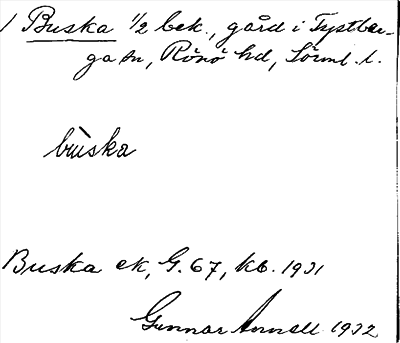 1 Buska 1/2 bek., gård i Tystber-
ga sn, Rönö hd, Sörml. l.
bùska
Buska ek, G. 67, kb. 1931
Gunnar Annell 1932